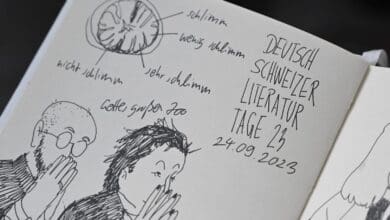 schlimm
wenig schlimm
nicht schlimm
sehr schlimm
Gottes großer Zoo
DEUTSCH
SCHWEIZER
LITERATUR
TAGE 23
24.09.2023